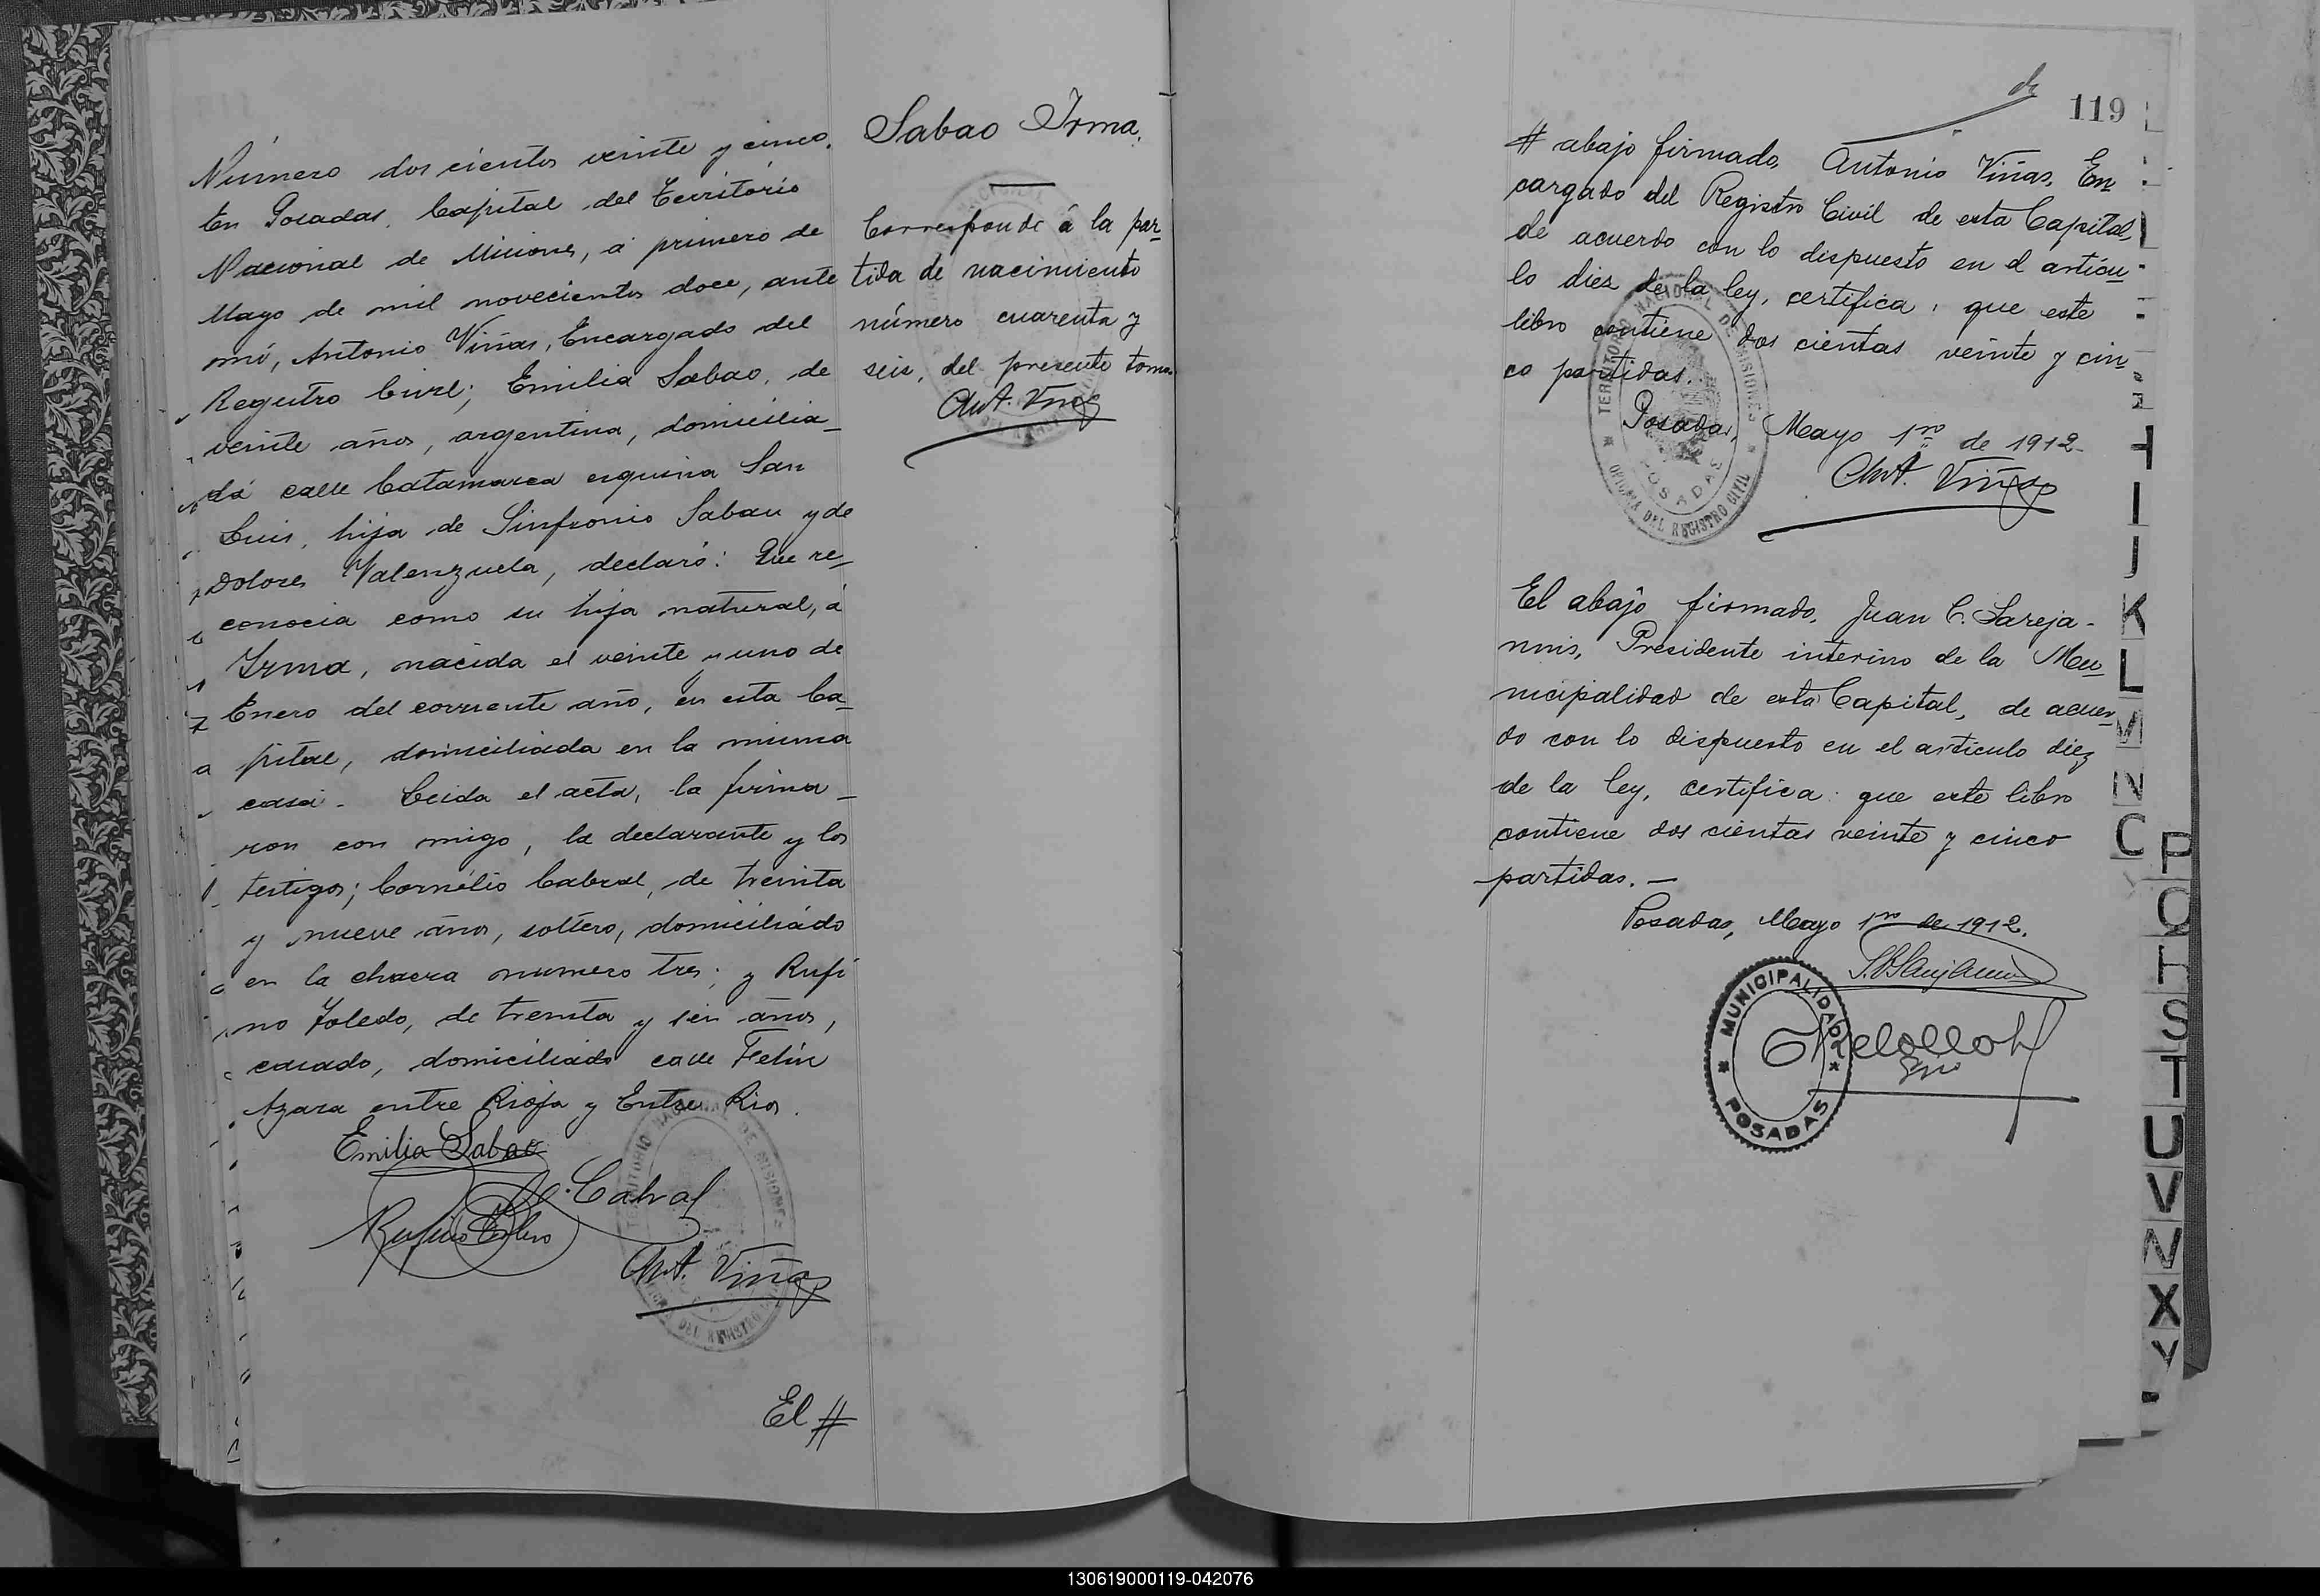 Número dos cientos veinte y cinco.
En Posadas, Capital del Territorio
Nacional de Misiones, á primero de
Mayo de mil novecientos doce, ante
mí, Antonio Viñas, Encargado del
Registro Civil; Emilia Sabao, de
veinte años, argentina, domicilia_
da calle Catamarca esquina San
Luis, hija de Sinfronio Sabau y de
Dolores Valenzuela, declaró: Que re_
conocia como su hija natural, á
Irma, nacida el veinte y uno de
Enero del corriente año, en esta Ca_
pital, domiciliada en la misma
casa. Leida el acta, la firma_
ron con migo, la declarante y los
testigos; Cornelio Cabral, de treinta
y nueve años, soltero, domiciliado
en la chacra numero tres; y Rufi
no Toledo, de treinta y seis años,
casado, domiciliado calle Felix
Azara entre Rioja y Entre Rios.
Emilia Sabao
C. Cabral
Rufino Toledo
Ant. Viñas
El #
Sabao Irma.
Corresponde á la par_
tida de nacimiento
número cuarenta y
seis, del presente tomo
Ant. Viñas
119
# abajo firmado, Antonio Viñas, En
cargado del Registro Civil de esta Capital,
de acuerdo con lo dispuesto en el artícu-
lo diez de la ley, certifica: que este
libro contiene dos cientas veinte y cin_
co partidas.
Posadas, Mayo 1ro de 1912.
Ant. Viñas
TERRITORIO NACIONAL DE MISIONES
POSADAS
OFICINA DEL REGISTRO CIVIL
El abajo firmado, Juan C. Sareja-
nnis, Presidente interino de la Mu_
nicipalidad de esta Capital, de acuer_
do con lo dispuesto en el artículo diez
de la ley, certifica: que este libro
contiene dos cientas veinte y cinco
partidas. —
Posadas, Mayo 1ro de 1912.
MUNICIPALIDAD
POSADAS
I
J
K
L
M
N
P
Q
S
T
U
V
X
Y
130619000119-042076